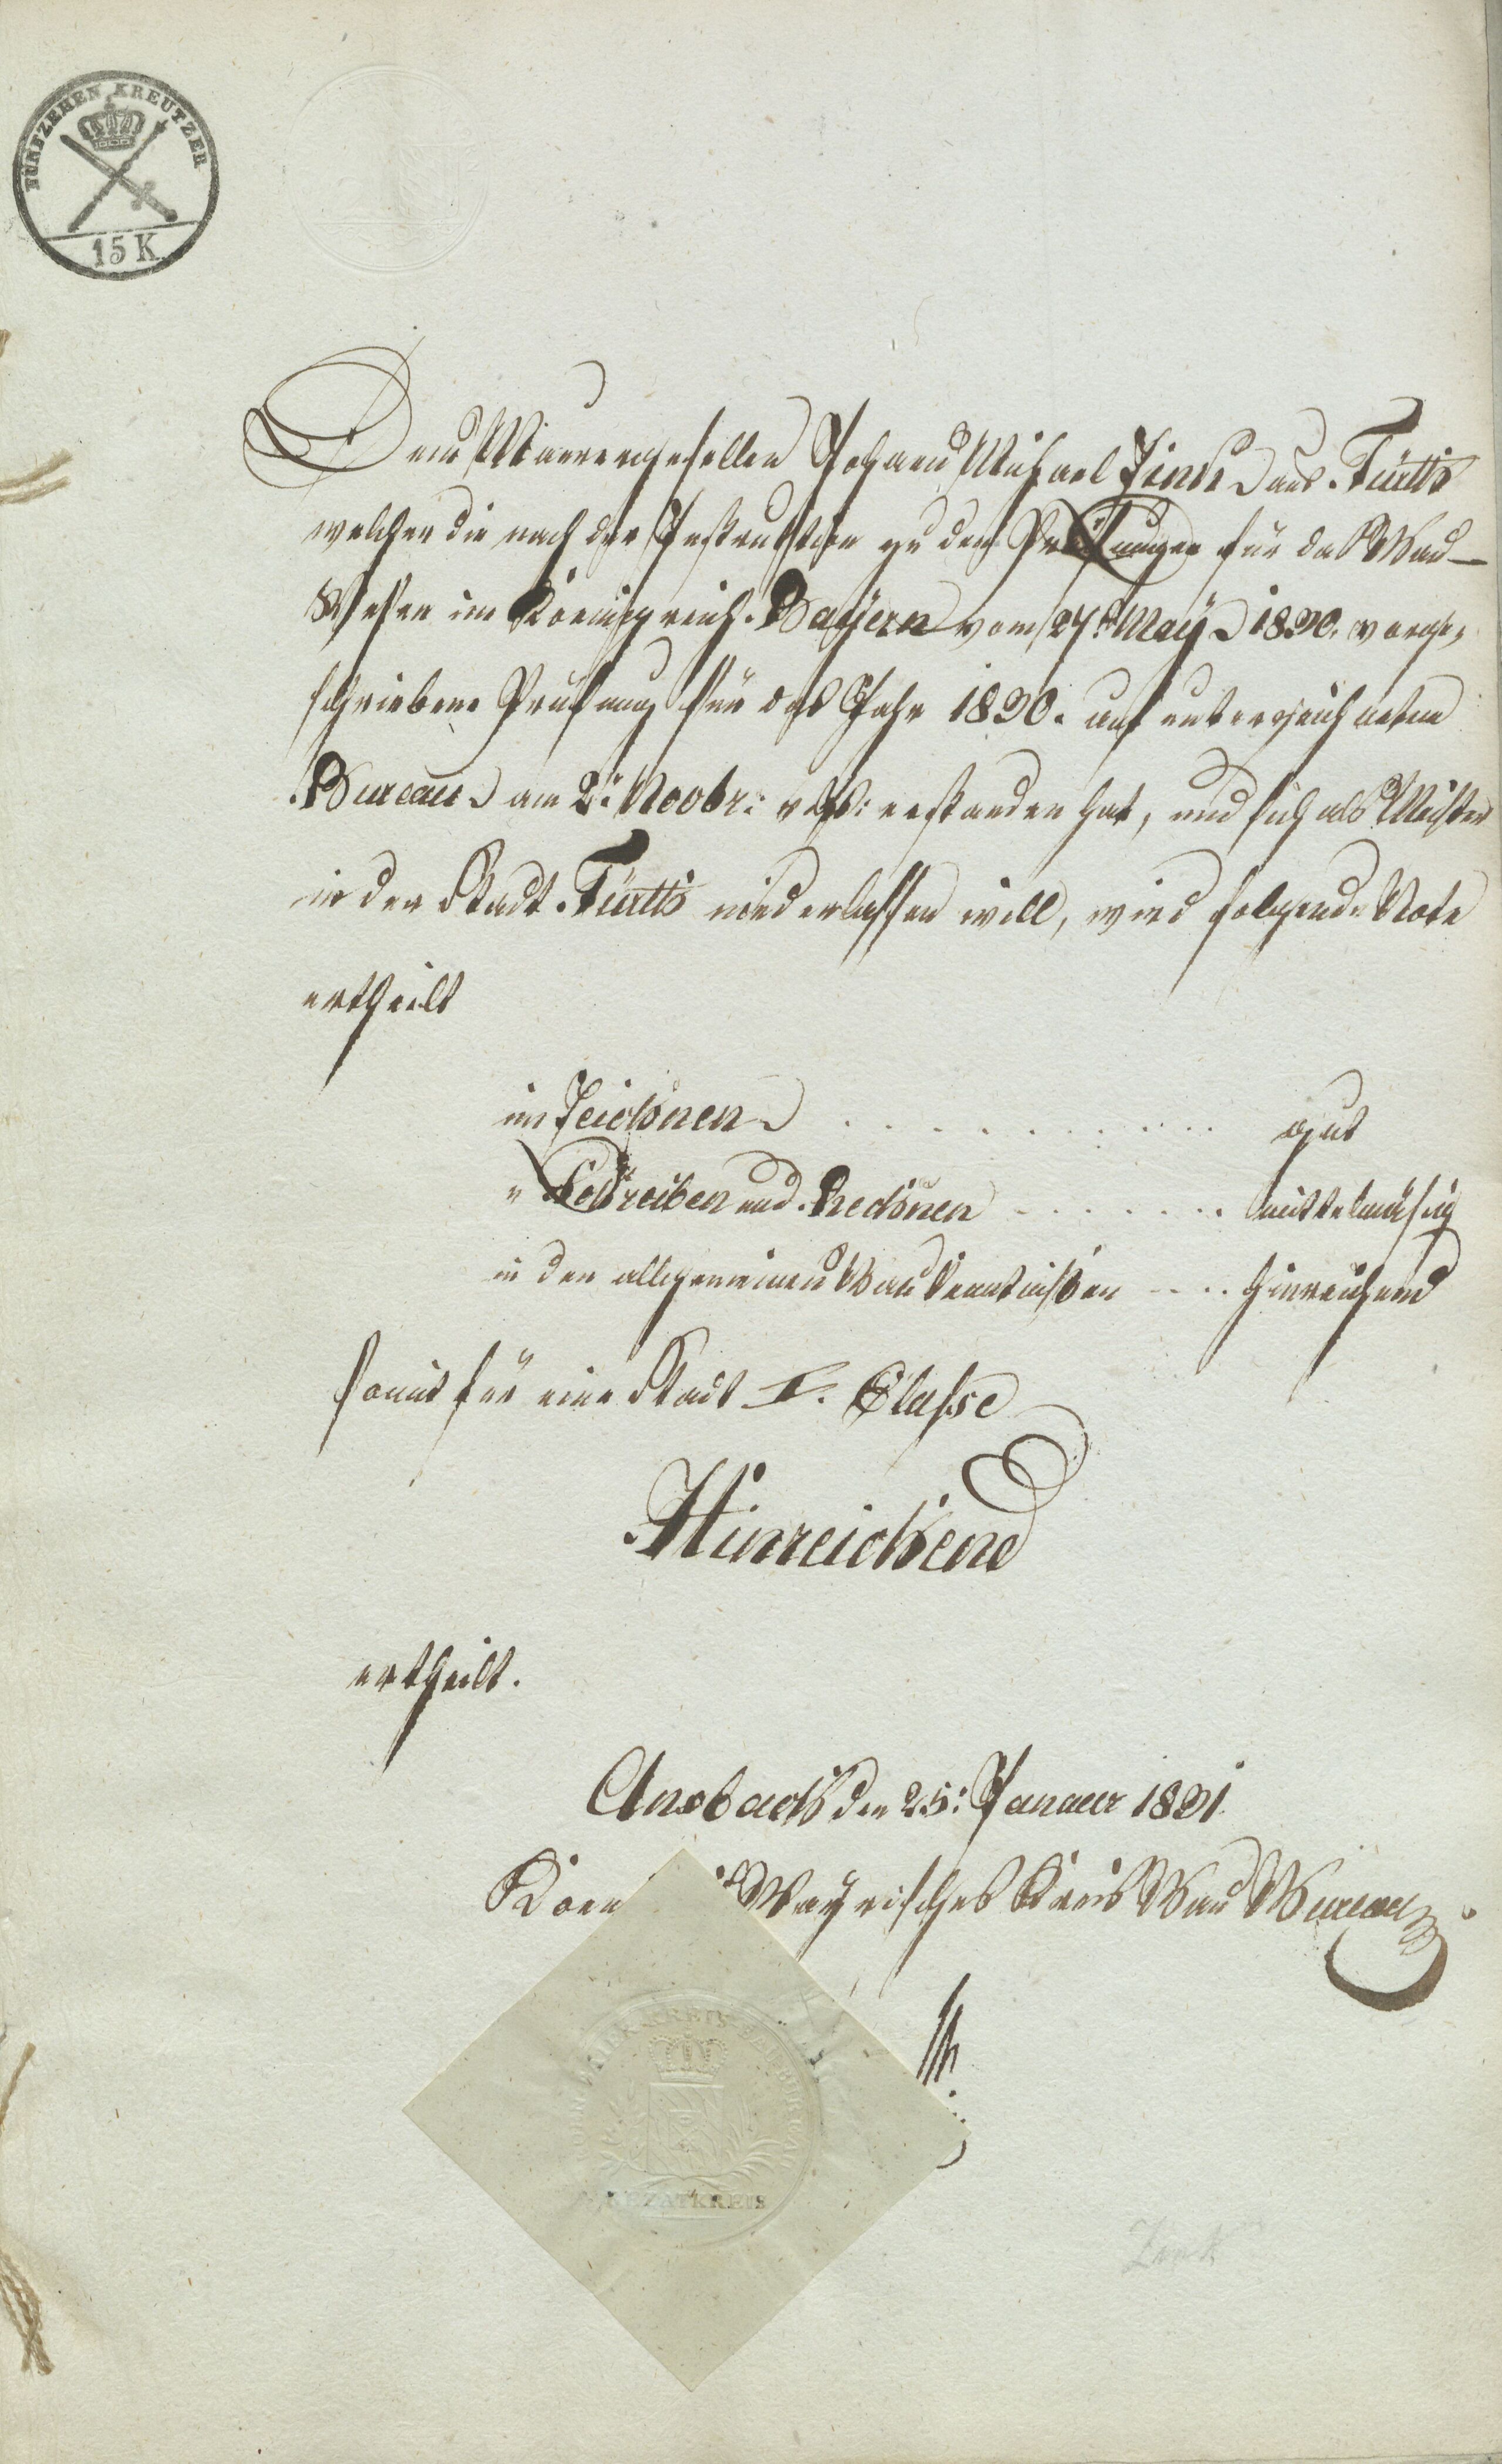 FÜNFZEHEN KREUTZER
15 K
Dem Maurergesellen Johann Michael Zink aus Fürth
welcher die nach der Instruktion zu den Prüfungen für das Bau-
Wesen im Koenigreich Bayern vom 27t. May 1830. vorge-
schriebene Prüfung für das Jahr 1830. am unterzeichneten
Bureau am 2t. Novbr: v. Js: erstanden hat, und sich als Meister
in der Stadt Fürth niederlassen will, wird folgende Note
ertheilt
im Zeichnen . . . . . . . . . . gut
" Schreiben und Rechnen . . . . . . . mittelmäsig
in den allgemeinen Bau Kenntnißen . . . . hinreichend
somit für eine Stadt I. Classe
Hinreichend
ertheilt.
Ansbach den 25t. Januar 1831.
Koen Bayrisches Kreis Bau Bureau
REZATKREIS
Zink